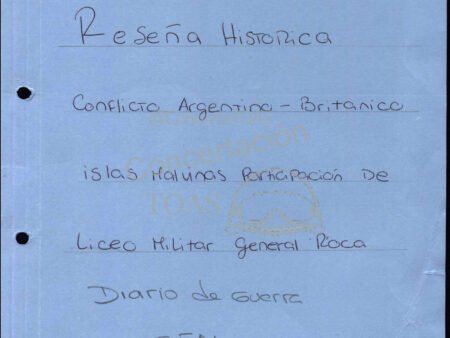 Reseña Historica
Conflicto Argentino - Britanico
islas Malvinas Participación De
Liceo Militar General Roca
Diario de Guerra